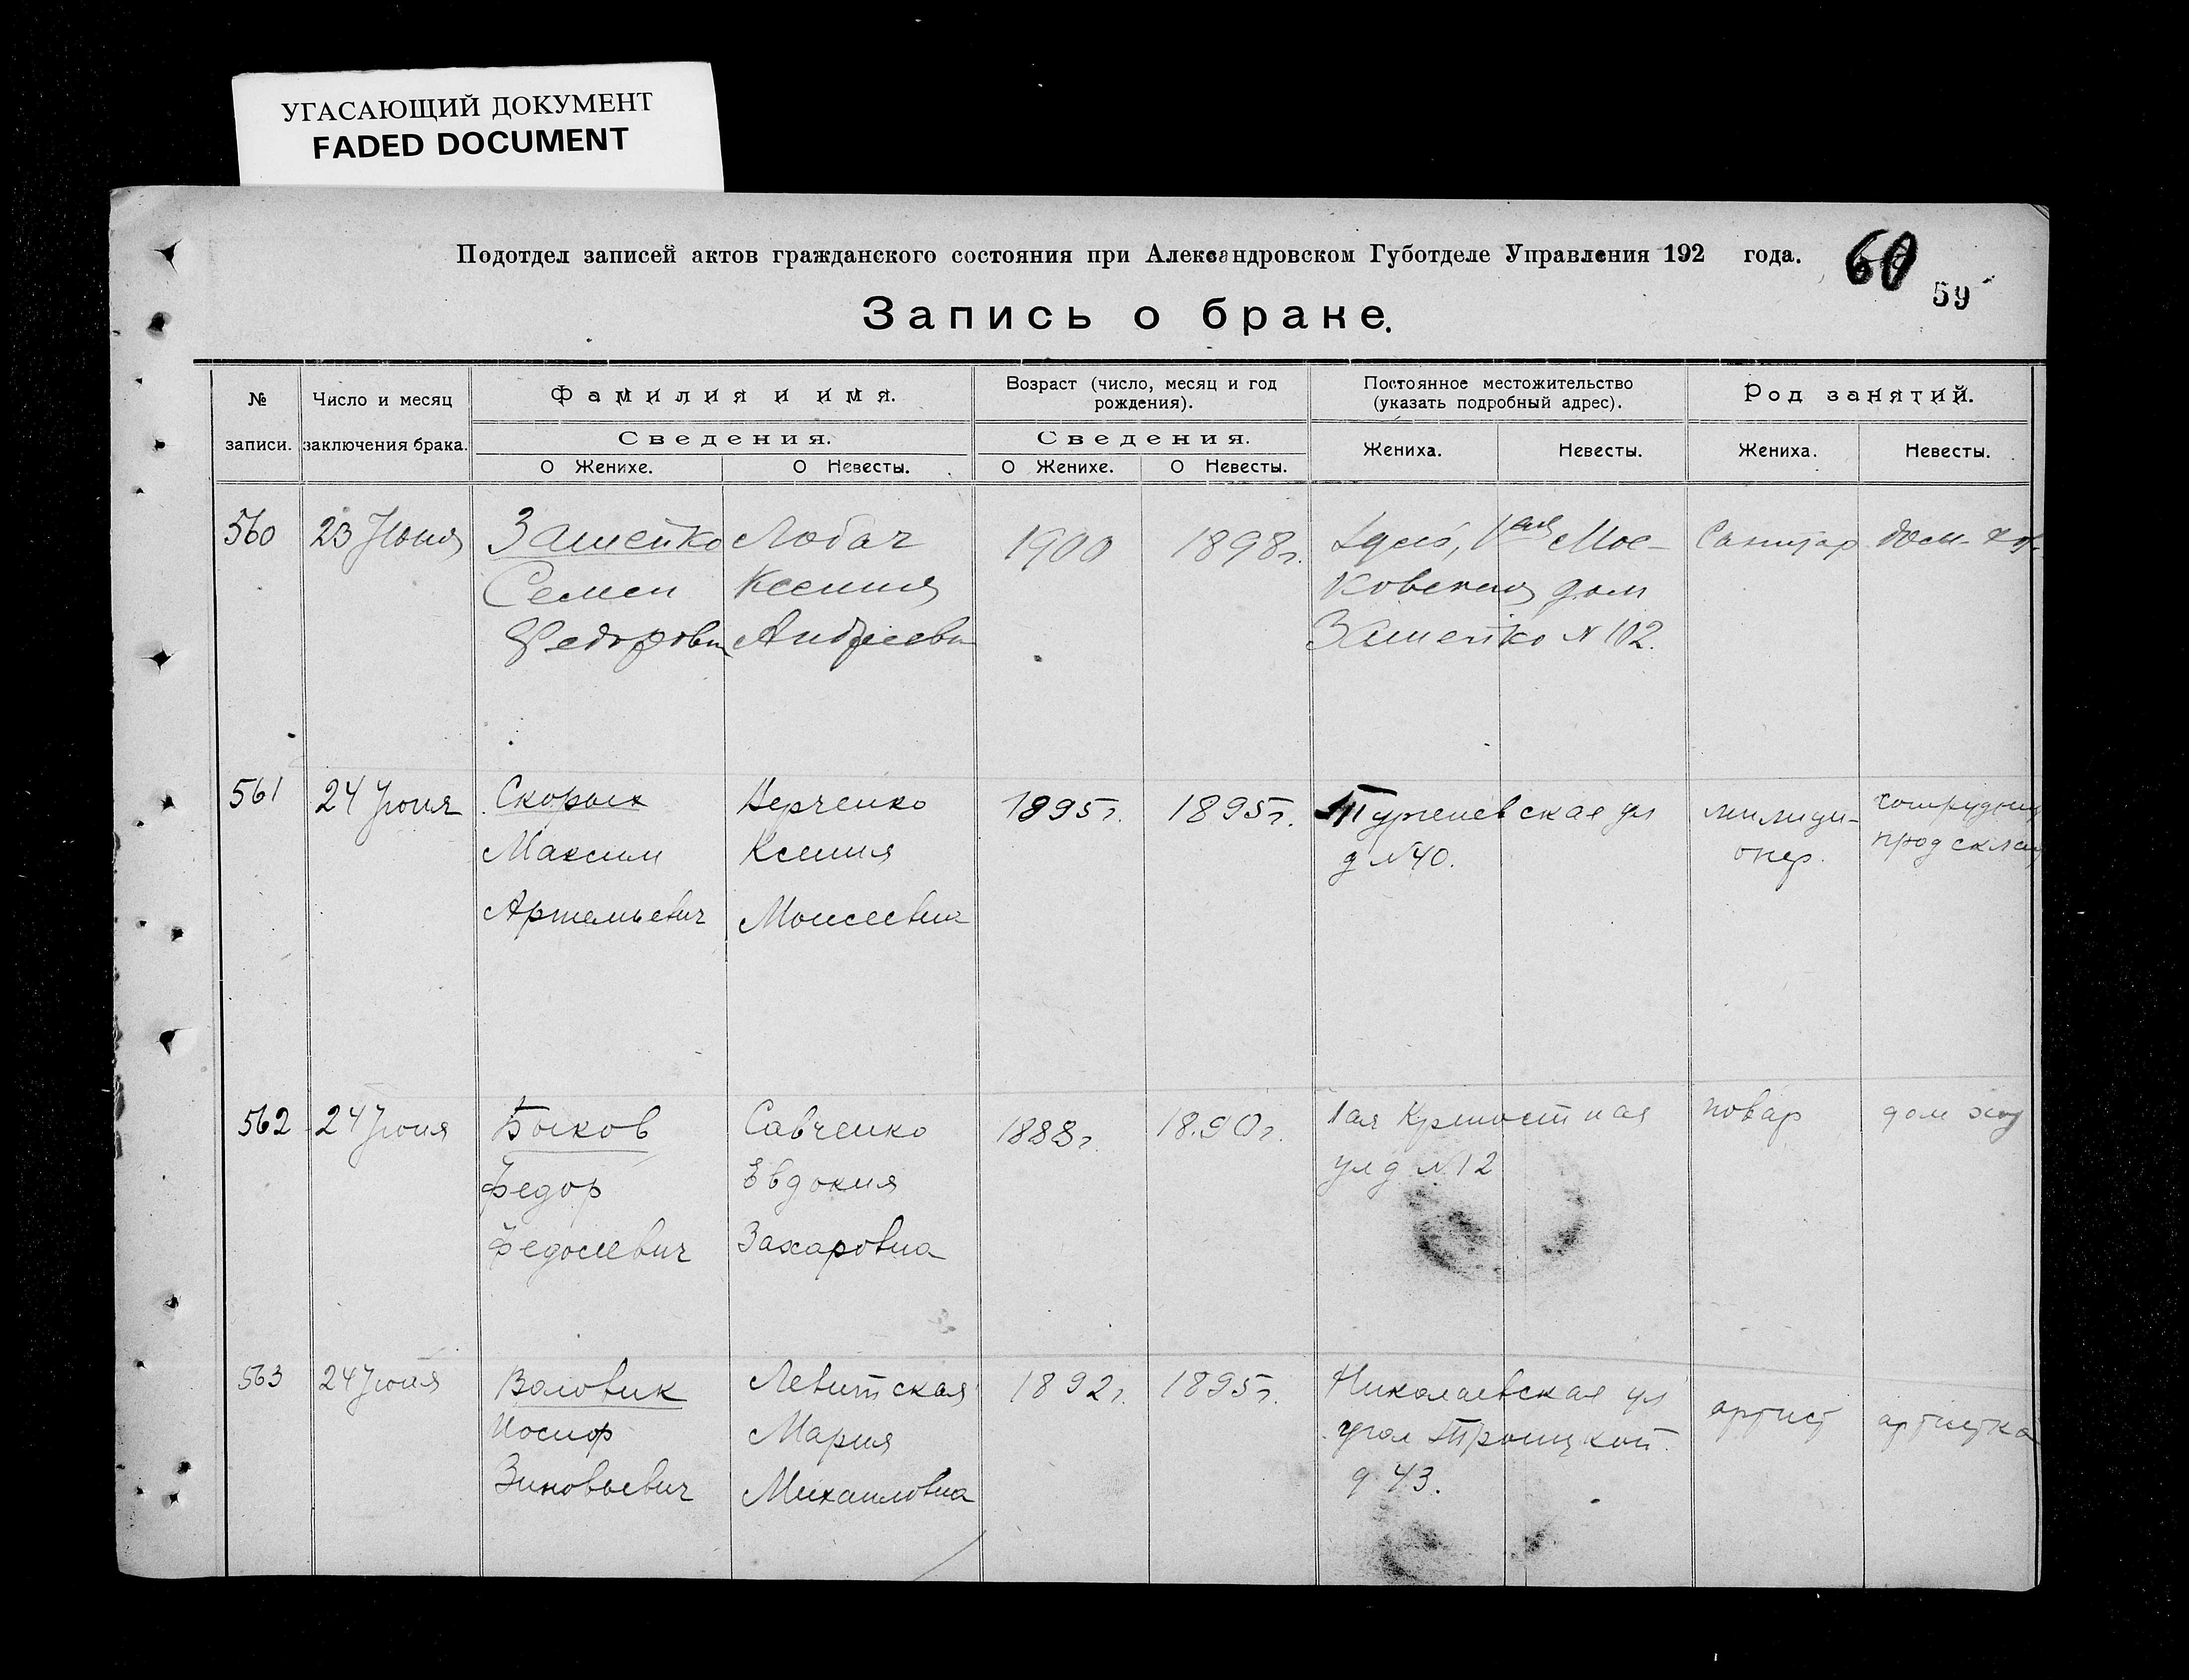 УГАСАЮЩИЙ ДОКУМЕНТ
FADED DOCUMENT
Подотдел записей актов гражданского состояния при Александровском Губотделе Управления 192 года.
60
59
Запись о браке.
№ записи.
Число и месяц заключения брака.
Фамилия и имя.
Сведения.
О Женихе.
О Невесты.
Возраст (число, месяц и год рождения).
Сведения.
О Женихе.
О Невесты.
Постоянное местожительство (указать подробный адрес).
Жениха.
Невесты.
Род занятий.
Жениха.
Невесты.
560
23 Июня
Семен
Федорович
Лобач
Ксения
Андреевн
1900
1898г.
Здесь, 1ая Мос-
ковская дом
№ 102.
Санитар
дом. хоз.
561
24 Июня
Скорых
Максим
Артемьевич
Ксения
Моисеевна
1895г.
1895г.
Тургеневская ул
д №40.
милици-
онер.
сотрудниц
продсклад
562
24 Июня
Быков
Федор
Федосеевич
Савченко
Евдокия
Захаровна
1888г.
1890г.
1ая Крепостная
ул д №12
повар
дом хоз
563
24 Июня
Воловик
Иосиф
Зиновьевич
Левитская
Мария
Михайловна
1892г.
1895г.
Николаевская ул
угол Троицкой
д 43.
артист
артистка